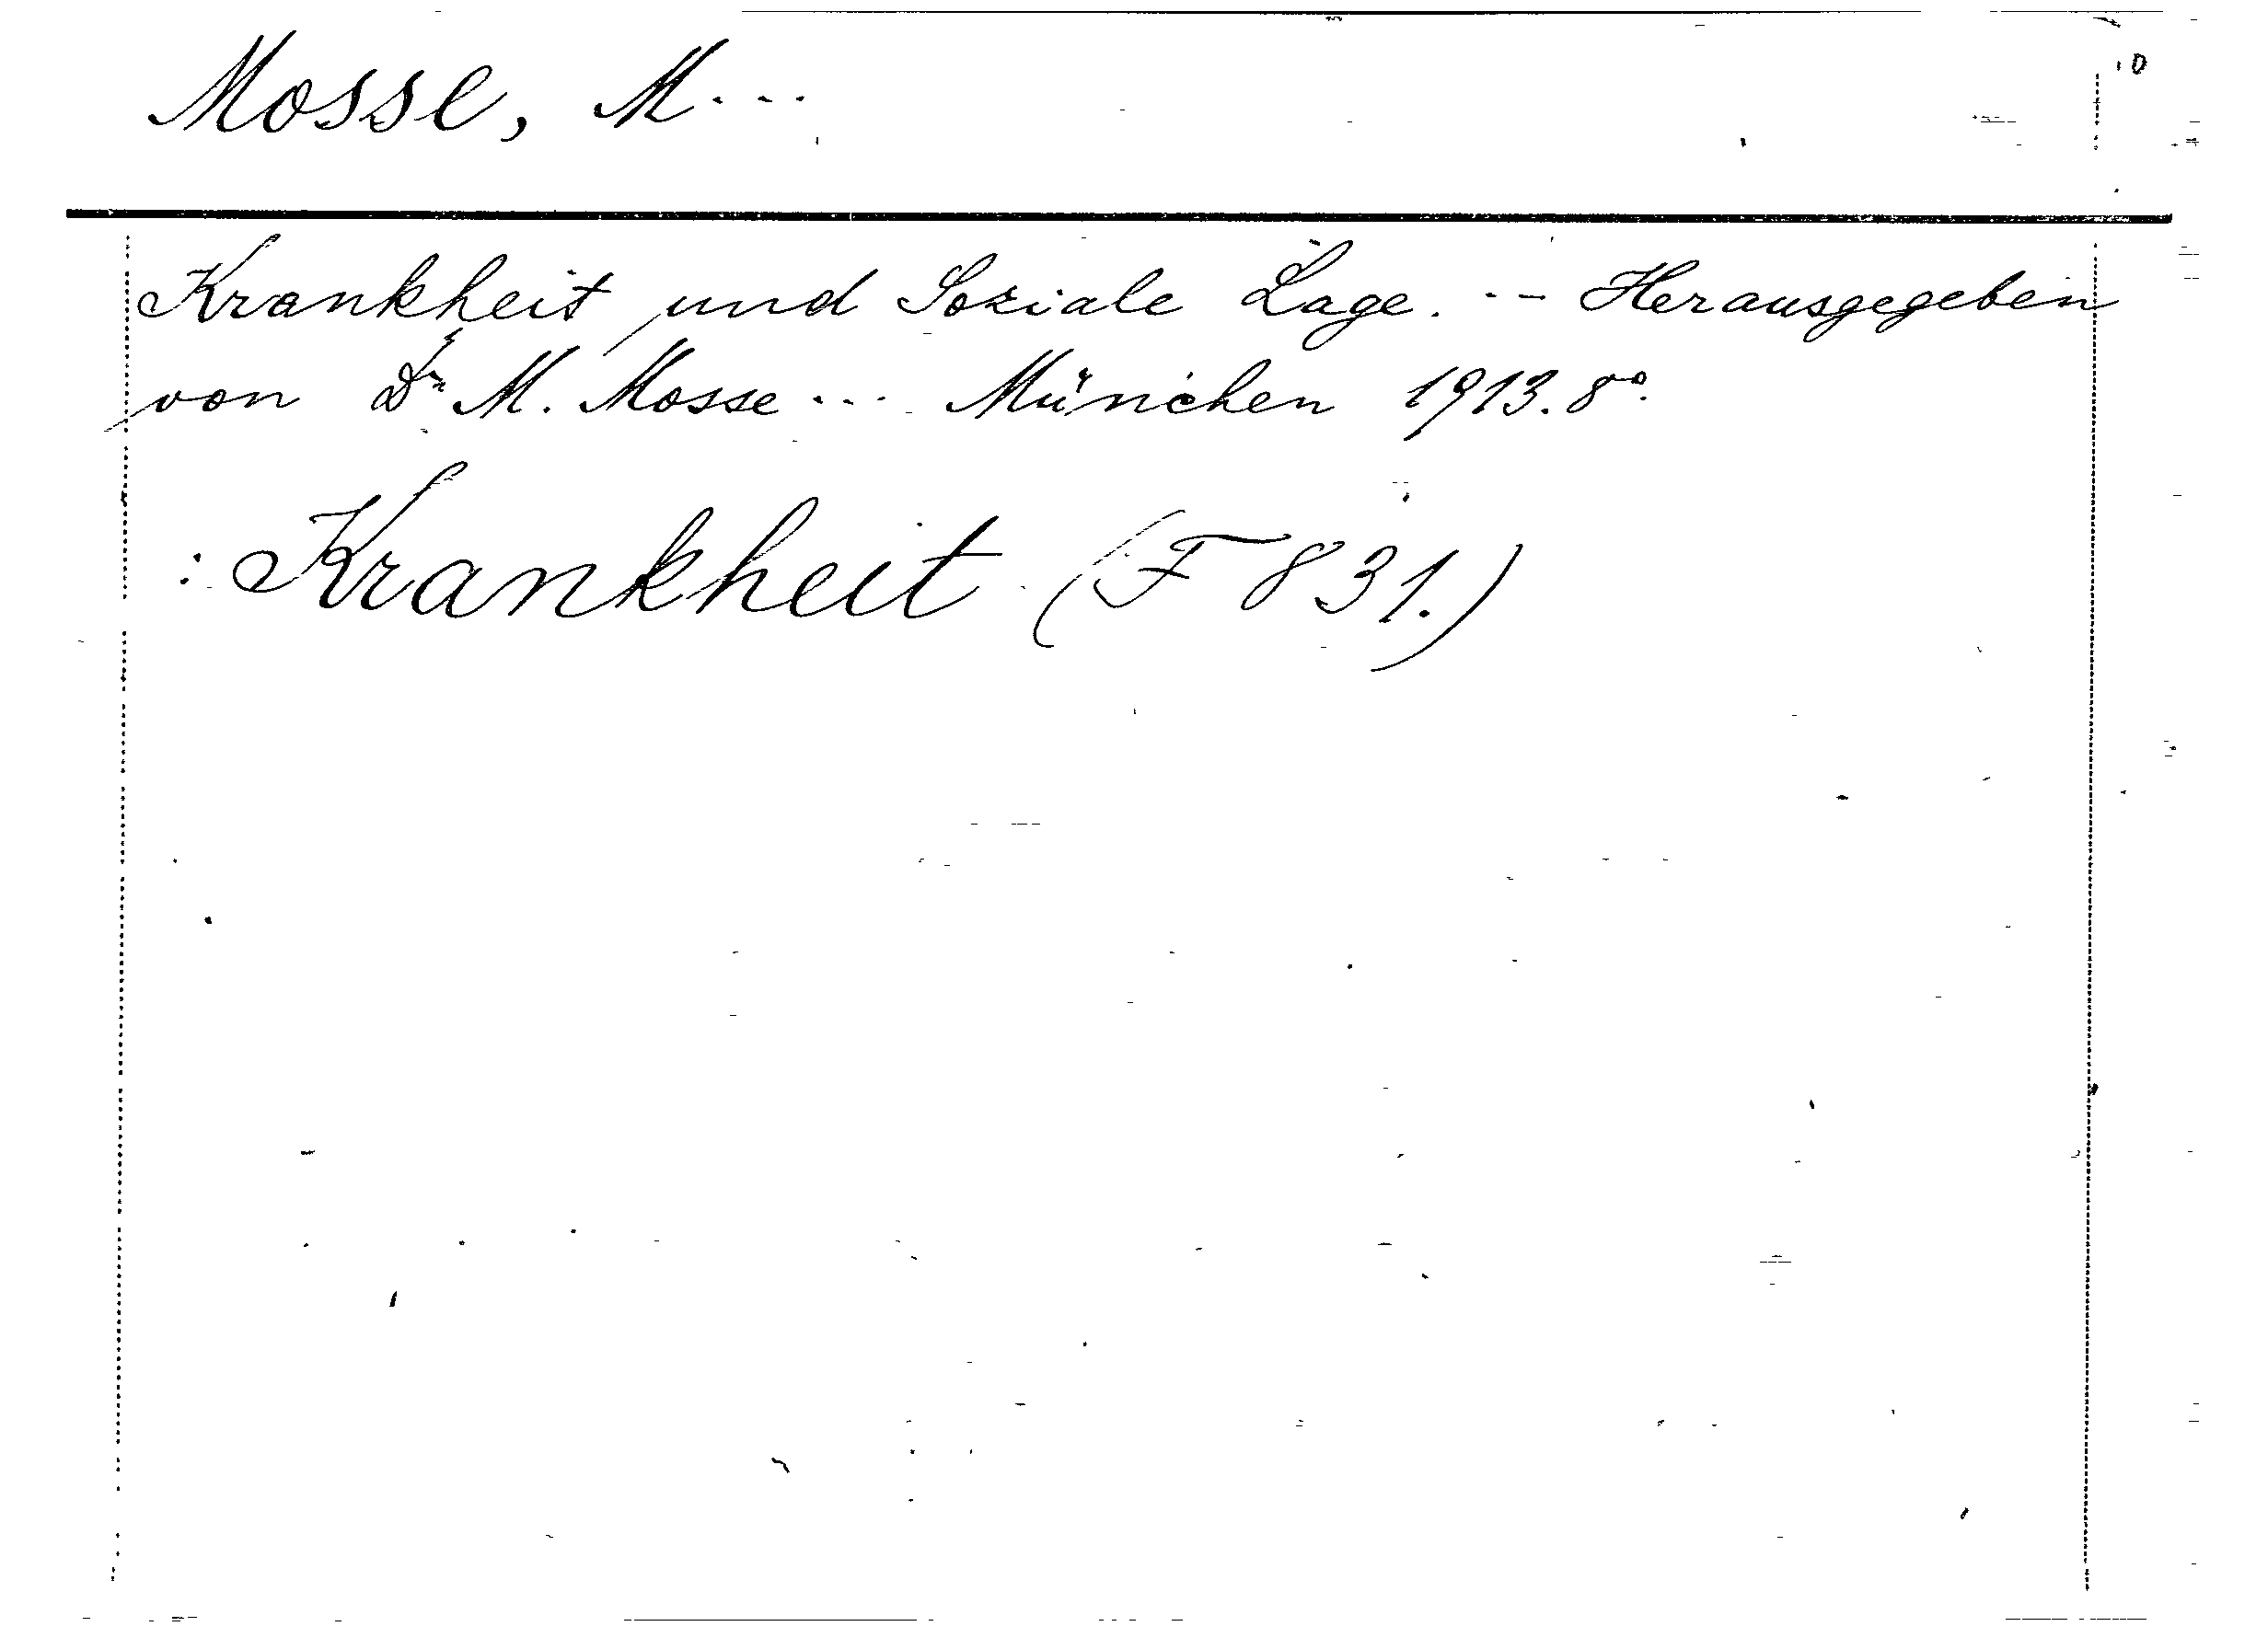 Mosse, M...
Krankheit und Soziale Lage. -- Herausgegeben
von Dr M. Mosse ... München 1913. 8°.
: Krankheit (F 831.)